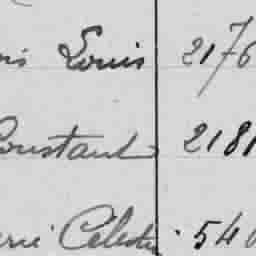 ois Louis 2176
Constant 2181
erie Célestin 540